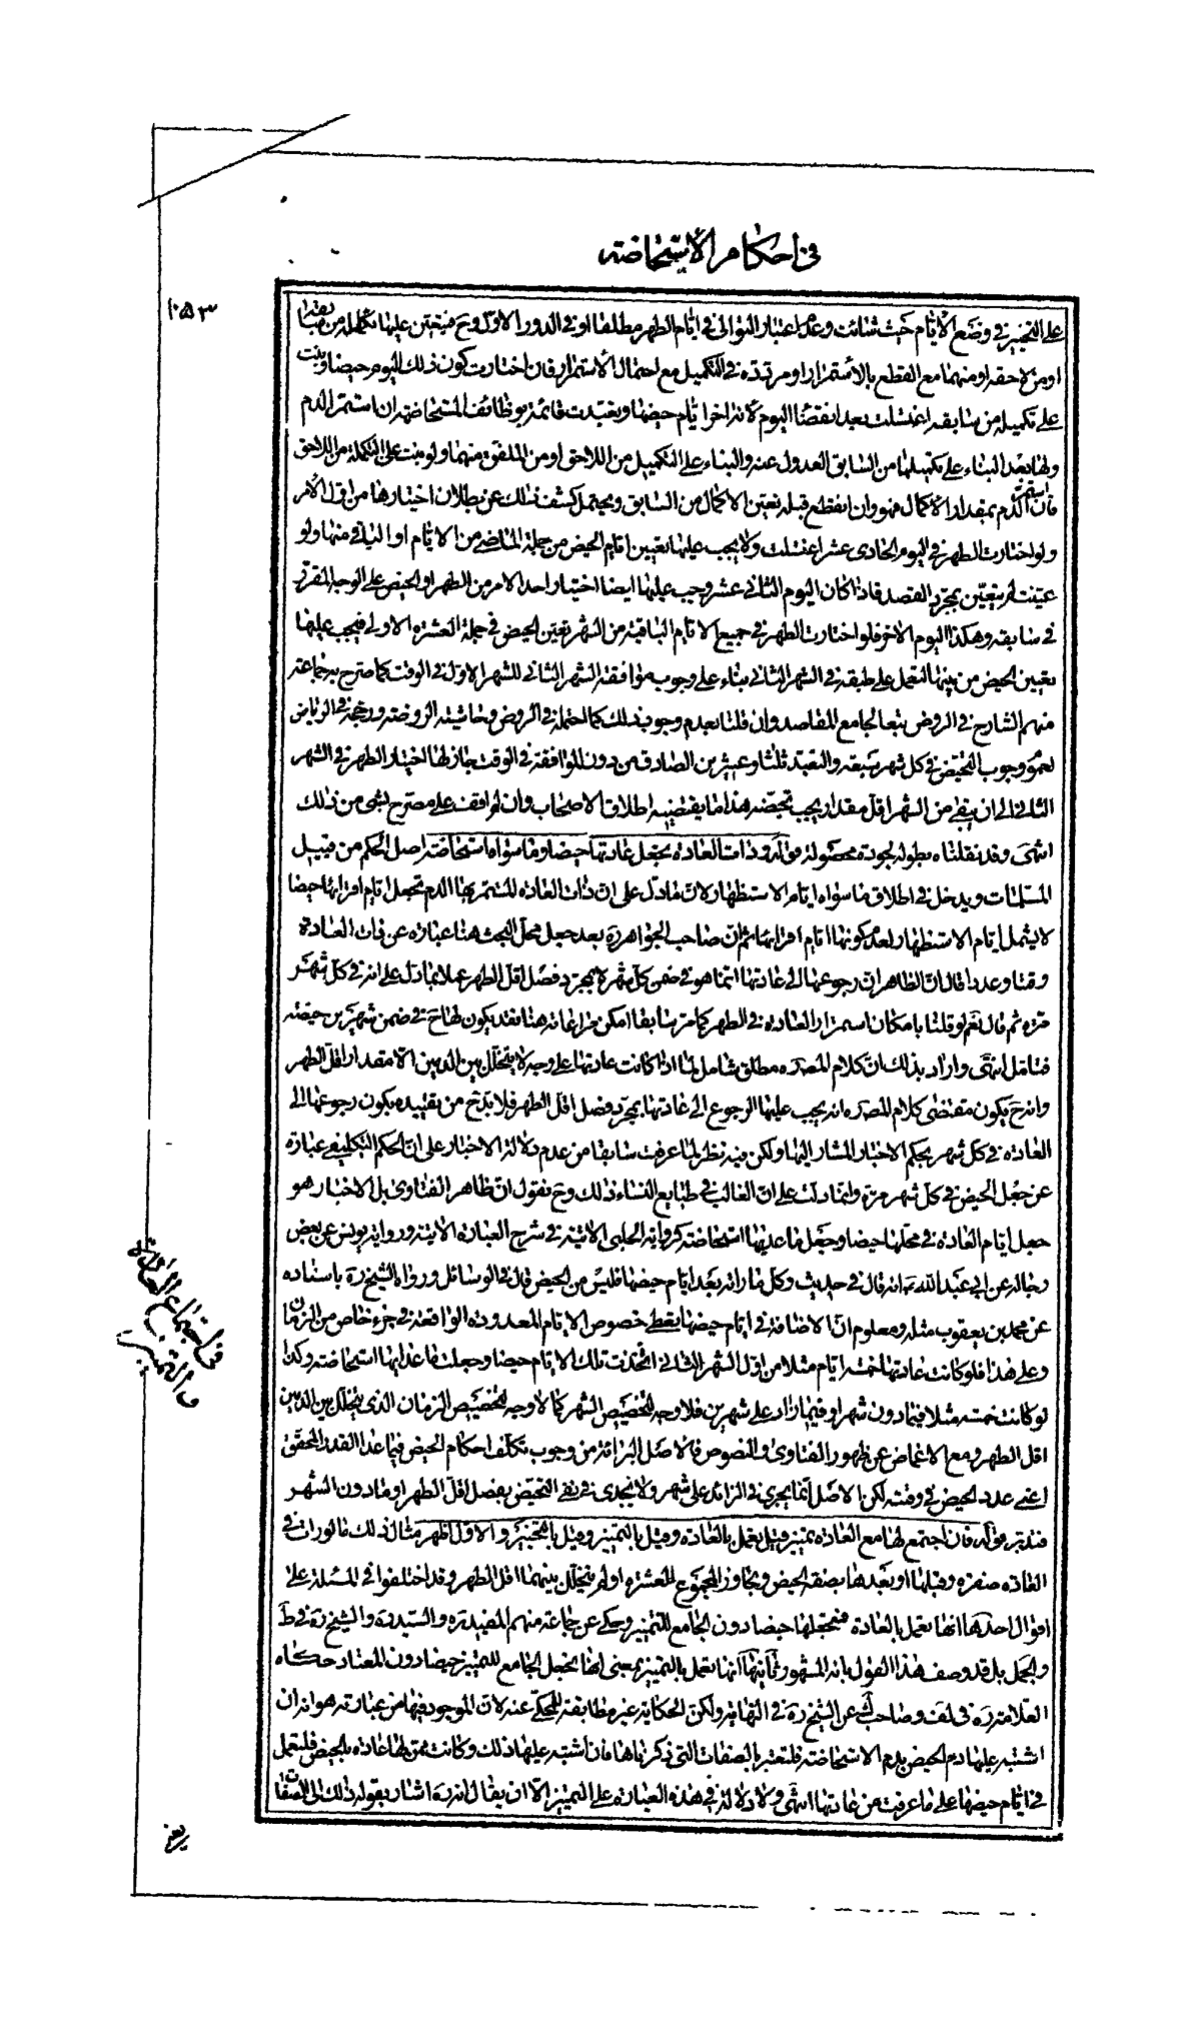 في احكام الاستحاضة
١٠٥٣
على التخيير في وضع الايام حيث شائت وعدم اعتبار التوالى في ايام الطهر مطلقا او في الدور الاول وح فيتعين عليها تكمله من سابقه
او من لاحقه او منهما مع القطع بالاستمرار او مرددة في التكميل مع احتمال الاستمرار فان اختارت كون ذلك اليوم حيضا وبنت
على تكميله من سابقه اغتسلت بعد انقضاء اليوم لانه اخر ايام حيضها وتعبدت قائمة بوظائف المستحاضة ان استمر الدم
ولها بعد البناء على تكميلها من السابق العدول عنه والبناء على التكميل من اللاحق او من الملفق منهما ولو بنت على التكملة من اللاحق
فان استمر الدم بمقدار الاكمال فهو وان انقطع قبله تعين الاكمال من السابق ويحتمل كشف ذلك عن بطلان اختيارها من اول الامر
ولو اختارت الطهر في اليوم الحادى عشر اغتسلت ولا يجب عليها تعيين ايام الحيض من جملة الماضي من الايام او الباقي منها ولو
عينت لم يتعين بمجرد القصد فاذا كان اليوم الثانى عشر وجب عليها ايضا اختيار احد الامرين الطهر او الحيض على الوجه المقرر
في سابقه وهكذا اليوم الاخر فلو اختارت الطهر في جميع الايام الباقية من الشهر تعين الحيض في جملة العشرة الاولى فيجب عليها
تعيين الحيض من بينها لتعمل على طبقه في الشهر الثانى بناء على وجوب موافقة الشهر الثانى للشهر الاول في الوقت كما صرح به جماعة
منهم الشارح في الروض تبعا لجامع المقاصد وان قلنا بعدم وجوب ذلك كما احتمله في الروض وحاشية الروضة ورجحه في الرياض
لعموم وجوب التحيض في كل شهر سبعة والتعبد ثلثا وعشرين الصادق من دون الموافقة في الوقت جاز لها اختيار الطهر في الشهر
الثانى الى ان يبقى من الشهر اقل مقدار يجب تحيضه هذا ما يقتضيه اطلاق الاصحاب وان لم اقف على مصرح بشئ من ذلك
انتهى وقد نقلناه بطوله لجودة محصوله قوله وذات العادة تجعل عادتها حيضا وما سواه استحاضة اصل الحكم من قبيل
المسلمات ويدخل في اطلاق ما سواه ايام الاستظهار لان ما دل على ان ذات العادة المستمر بها الدم تجعل ايام اقرائها حيضا
لا يشمل ايام الاستظهار لعدم كونها ايام اقرائها ثم ان صاحب الجواهر ره بعد جعل محل البحث هنا عبارة عن ذات العادة
وقتا وعددا قال ان الظاهر ان رجوعها الى عادتها انما هو في ضمن كل شهر لا بمجرد فصل اقل الطهر عملا بما دل على انه في كل شهر
مرة ثم قال نعم لو قلنا بامكان استمرار العادة في الطهر كما مر سابقا امكن مراعاته هنا فقد يكون لها ح في ضمن شهرين حيضة
فتامل انتهى واراد بذلك ان كلام المصنف ره مطلق شامل لما اذا كانت عادتها على وجه لا يتخلل بين الدمين الا مقدار اقل الطهر
وانه ح يكون مقتضى كلام المصنف ره انه يجب عليها الرجوع الى عادتها بمجرد فصل اقل الطهر فلا بد ح من تقييده بكون رجوعها الى
العادة في كل شهر بحكم الاخبار المشار اليها ولكن فيه نظر لما عرفت سابقا من عدم دلالة الاخبار على ان الحكم التكليفي عبارة
عن جعل الحيض في كل شهر مرة وانما دلت على ان الغالب في طبايع النساء ذلك وح نقول ان ظاهر الفتاوى بل الاخبار هو
جعل ايام العادة في محلها حيضا وجعل ما عديها استحاضة كرواية الحلبى الاتية في شرح العبارة الاتية ورواية يونس عن بعض
رجاله عن ابى عبد الله ع انه قال في حديث وكل ما راته بعد ايام حيضها فليس من الحيض قال في الوسائل ورواه الشيخ ره باسناده
عن محمد بن يعقوب مثله ومعلوم ان الاضافة في ايام حيضها يعطى خصوص الايام المعدودة الواقعة في جزء خاص من الزمان
وعلى هذا فلو كانت عادتها خمسة ايام مثلا من اول الشهر الثانى اتخذت تلك الايام حيضا وجعلت ما عداها استحاضة وكذا
لو كانت خمسة مثلا فيما دون شهر او فيما زاد على شهرين فلا وجه لتخصيص الشهر كما لا وجه لتخصيص الزمان الذى يتخلل بين الدمين
اقل الطهر ومع الاغماض عن ظهور الفتاوى والنصوص فالاصل البرائة من وجوب تكلف احكام الحيض فيما عدا القدر المحقق
اعنى عدد الحيض في وقته لكن الاصل انما يجرى في الزائد على شهر ولا يجدى في نفى التحيض بفصل اقل الطهر او ما دون الشهر
فتدبر قوله فان اجتمع لها مع العادة تمييز قيل تعمل بالعادة وقيل بالتمييز وقيل بالتخيير والاول اظهر مثال ذلك ما لو رات في
العادة صفرة وقبلها او بعدها بصفة الحيض وتجاوز المجموع للعشرة او لم يتخلل بينهما اقل الطهر وقد اختلفوا في المسئلة على
اقوال احدها انها تعمل بالعادة فتجعلها حيضا دون الجامع للتمييز وحكى عن جماعة منهم المفيد ره والسيد ره والشيخ ره في ط
والجمل بل قد وصف هذا القول بانه المشهور ثانيها انها تعمل بالتمييز بمعنى انها تجعل الجامع للتمييز حيضا دون المعتاد حكاه
العلامة ره في لف وصاحب ك عن الشيخ ره في النهاية ولكن الحكاية غير مطابقة للمحكى عنه لان الموجود فيها من عبارته هو انه ان
اشتبه عليها دم الحيض بدم الاستحاضة فلتعتبر بالصفات التى ذكرناها فان اشتبه عليها ذلك وكانت ممن لها عادة بالحيض فلتعمل
في ايام حيضها على ما عرفت من عادتها انتهى ولا دلالة في هذه العبارة على التمييز الا ان يقال انه ره اشار بقوله ذلك الى الصفات
في اجتماع العادة
والتمييز
يعنى